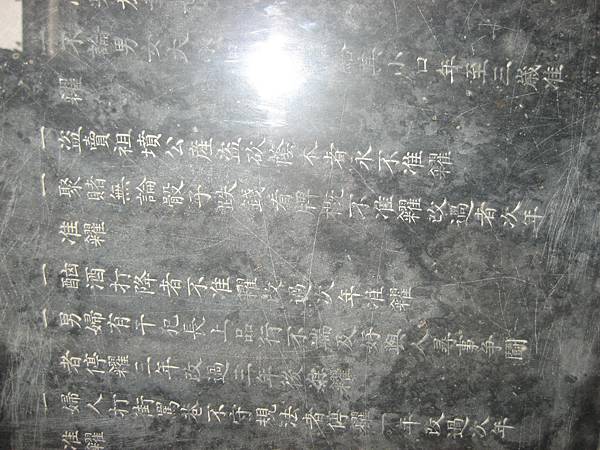 一不論男女大 小口年至三歲准
糴
一盜賣祖墳公產盜砍蔭木者永不准糴
一聚賭無論骰子跌錢看牌概不准糴改過者次年
准糴
一酗酒打降者不准糴改過次年准糴
一男婦有干犯長上品行不端及好與人尋事爭鬭
者停糴三年改過三年後准糴
一婦人打街罵巷不守規法者停糴一年改過次年
准糴